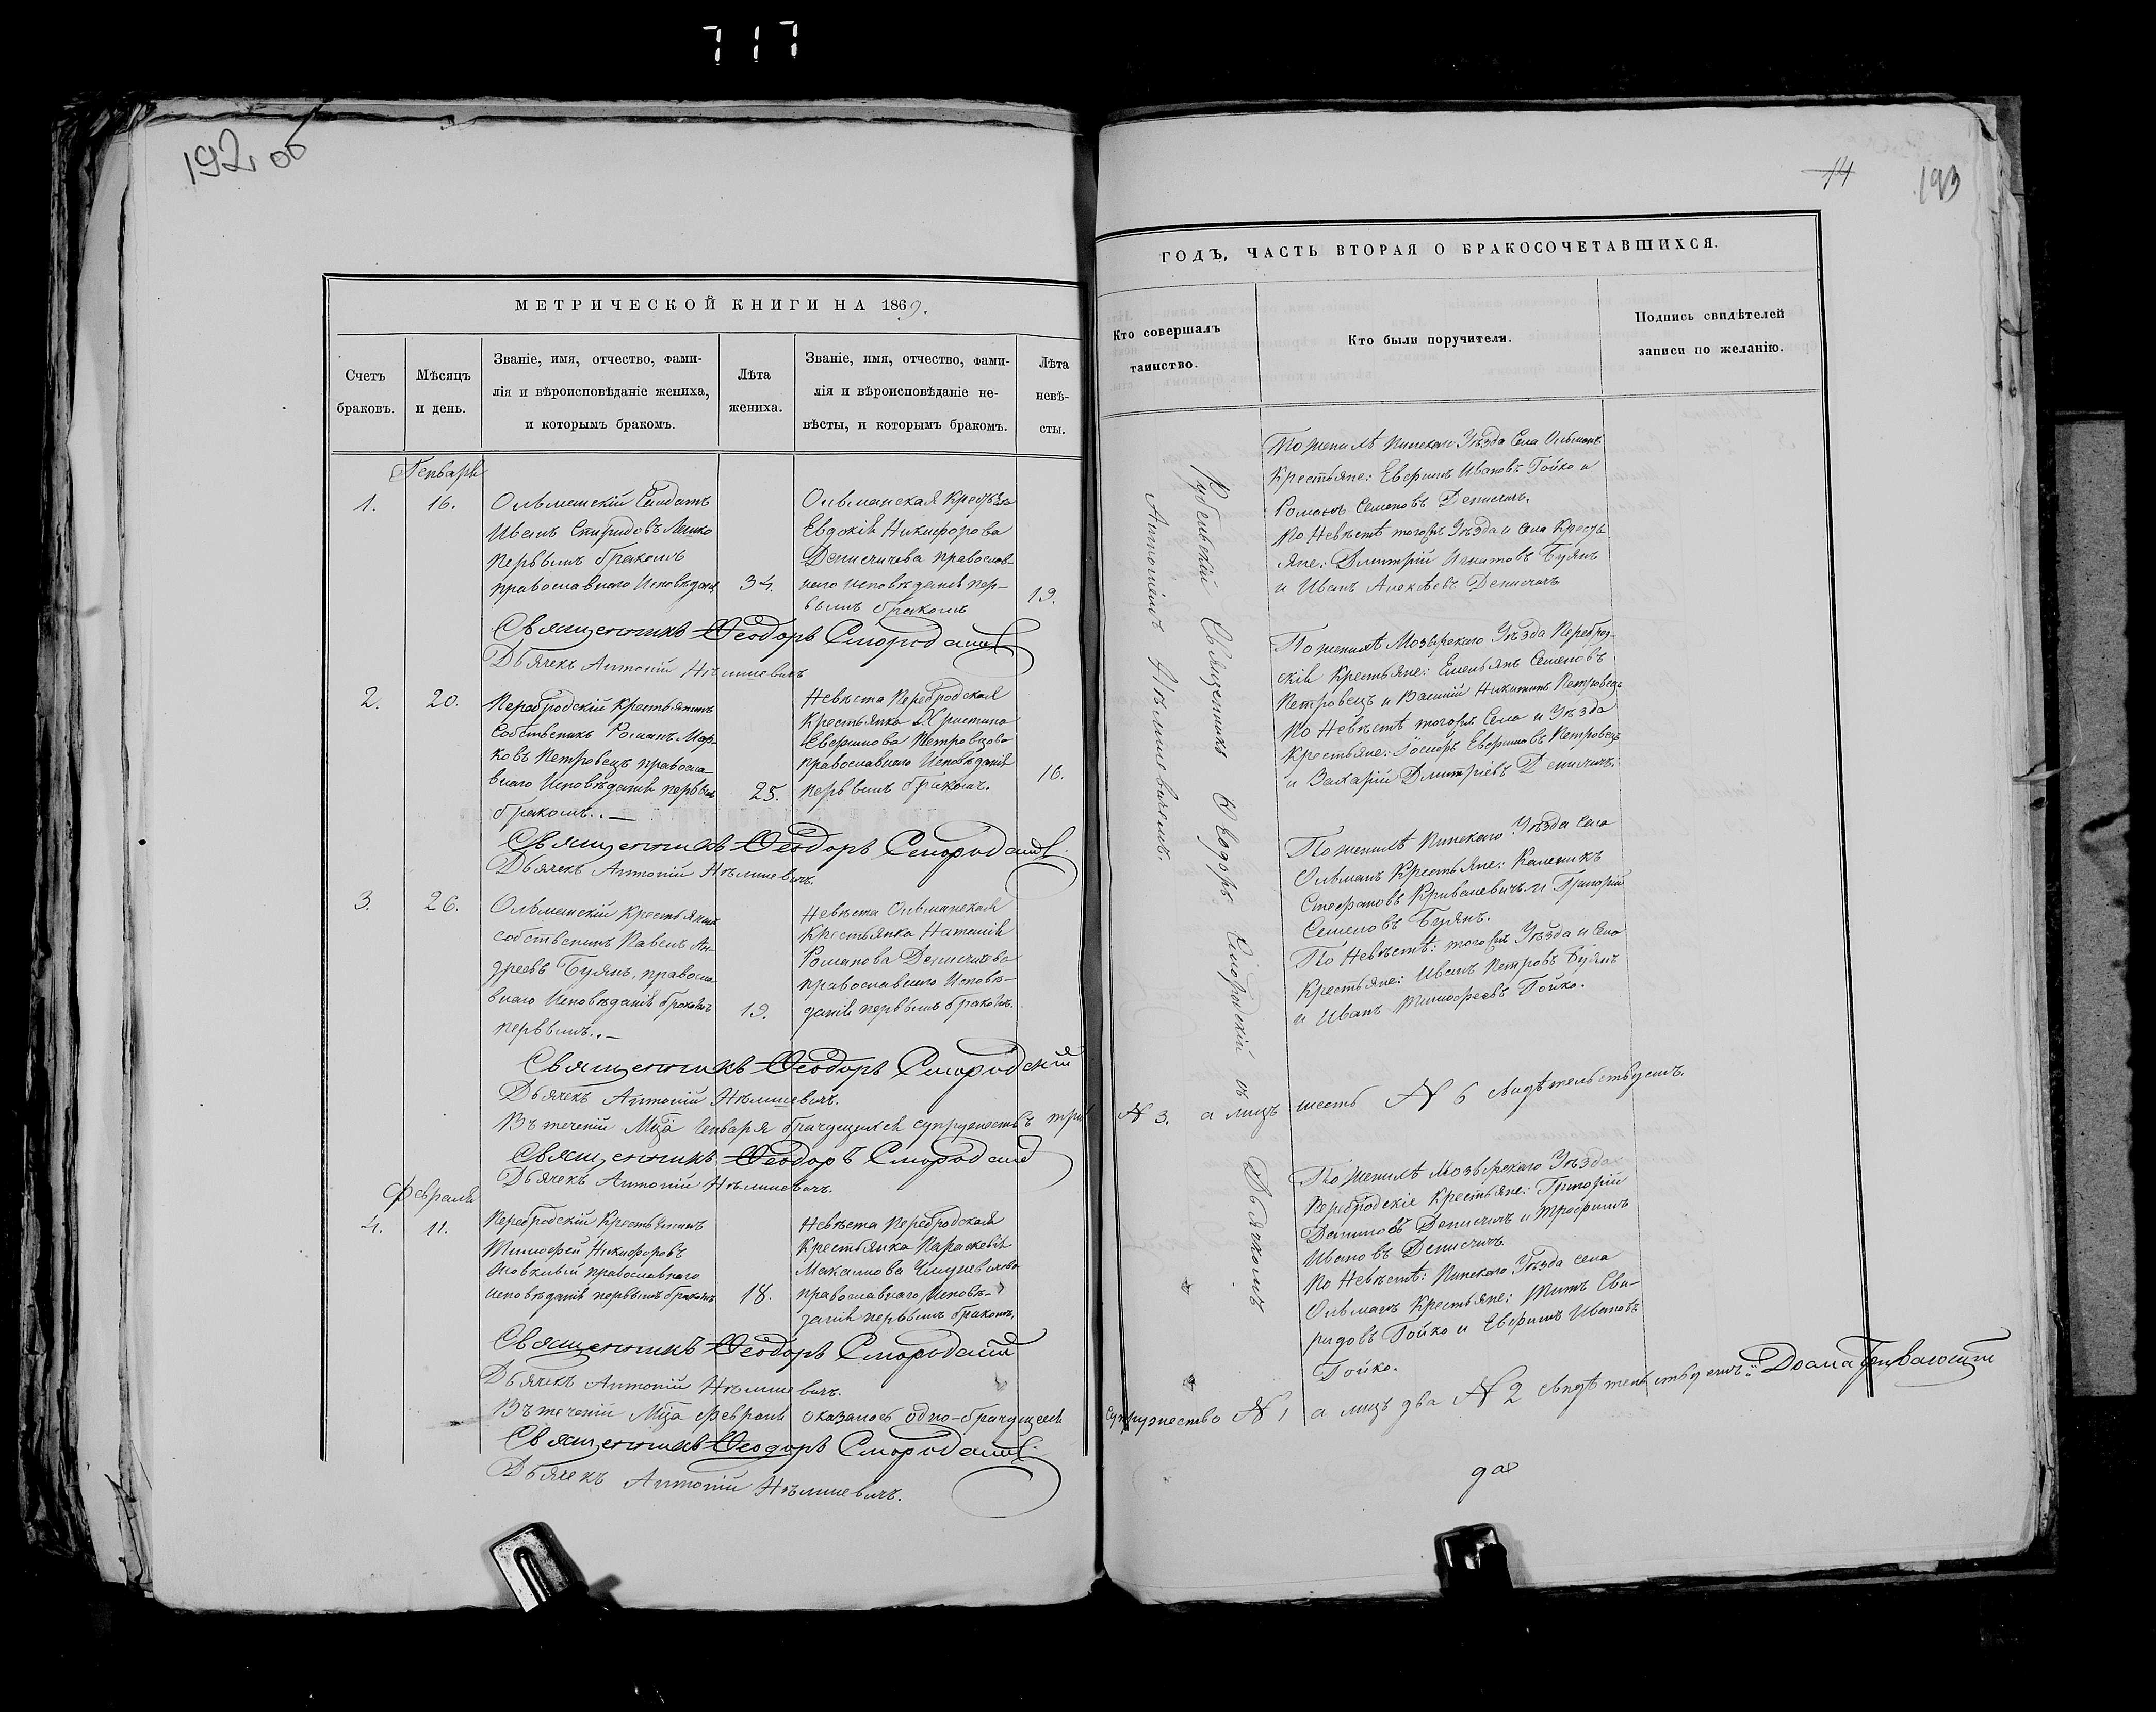 717
192 об
МЕТРИЧЕСКОЙ КНИГИ НА 1869.
Счетъ браковъ.
Мѣсяцъ и день.
Званіе, имя, отчество, фами-
лія и вѣроисповѣданіе жениха,
и которымъ бракомъ.
Лѣта жениха.
Званіе, имя, отчество, фами-
лія и вѣроисповѣданіе не-
вѣсты, и которымъ бракомъ.
Лѣта невѣ-
сты.
Генварь
1. 16.
Ольманскій Солдатъ
Иванъ Спиридовъ
первымъ бракомъ
православнаго Исповѣданія
34.
Ольманская Крестьянка
Евдокія Никифорова
Денисичева православ-
наго исповѣданія пер-
вымъ бракомъ
19.
Священникъ Ѳеодоръ Смородскій
Дьячекъ Антоній Нѣмшевичъ
2. 20.
Перебродскій Крестьянинъ
Собственникъ Романъ Мар-
ковъ Петровецъ правосла-
внаго Исповѣданія первымъ
бракомъ.
25.
Невѣста Перебродская
Крестьянка Христина
Евфимова Петровцова
православнаго Исповѣданія
первымъ бракомъ.
16.
Священникъ Ѳеодоръ Смородскій
Дьячекъ Антоній Нѣмшевичъ.
3. 26.
Ольманскій Крестьянинъ
собственникъ Павелъ Ан-
дреевъ Буянъ, правосла-
внаго Исповѣданія бракомъ
первымъ.
19.
Невѣста Ольманская
Крестьянка Наталія
Романова Денисичова
православнаго Исповѣ-
данія первымъ бракомъ.
Священникъ Ѳеодоръ Смородскій
Дьячекъ Антоній Нѣмшевичъ.
Въ теченіи Мца Генваря брачущихся супружествъ три
Священникъ Ѳеодоръ Смородскій
Дьячекъ Антоній Нѣмшевичъ.
Февраля
4. 11.
Перебродскій Крестьянинъ
Тимофей Никифоровъ
православнаго
исповѣданія первымъ бракомъ
18.
Невѣста Перебродская
Крестьянка Параскевія
Максимова
православнаго Исповѣ-
данія первымъ бракомъ.
Священникъ Ѳеодоръ Смородскій
Дьячекъ Антоній Нѣмшевичъ.
Въ теченіи Мца Февраля оказалось одно брачущееся
Священникъ Ѳеодоръ Смородскій
Дьячекъ Антоній Нѣмшевичъ.
14
193
ГОДЪ, ЧАСТЬ ВТОРАЯ О БРАКОСОЧЕТАВШИХСЯ.
Кто совершалъ
таинство.
Кто были поручители.
Подпись свидѣтелей
записи по желанію.
Священникъ Ѳеодоръ Смородскій съ Дьячкомъ
Антоніемъ Нѣмшевичемъ.
По женихѣ Пинскаго Уѣзда Села Ольманъ
Крестьяне: Евфимъ Ивановъ Гойко и
Романъ Семеновъ Денисичъ.
По Невѣстѣ тогожъ Уѣзда и Села Крестья-
яне: Димитрій Игнатовъ Буянъ
и Иванъ Алексѣевъ Денисичъ
По женихѣ Мозырскаго Уѣзда Переброд-
скія Крестьяне: Емельянъ Семеновъ
Петровецъ и Василій Никитинъ Петровецъ
По Невѣстѣ тогожъ Села и Уѣзда
Крестьяне: Евфимовъ Петровецъ
и Захарій Дмитріевъ Денисичъ.
По женихѣ Пинскаго Уѣзда Села
Ольманъ Крестьяне: Каленикъ
Стефановъ Кривалевичъ и Григорій
Семеновъ Буянъ.
По Невѣстѣ: тогожъ Уѣзда и Села
Крестьяне: Иванъ Петровъ Буянъ
и Иванъ Тимофеевъ Гойко.
N 3. а лицъ шесть N 6 свидѣтельствуемъ.
По женихѣ Мозырскаго Уѣзда
Перебродскіе Крестьяне: Григорій
Денисичъ и Трофимъ
Ивановъ Денисичъ
По Невѣстѣ: Пинскаго Уѣзда села
Ольманъ Крестьяне: Титъ Сви-
ридовъ Гойко и Евфимъ Ивановъ
Гойко.
Супружество N 1 а лицъ два N 2 свидѣтельствуемъ.